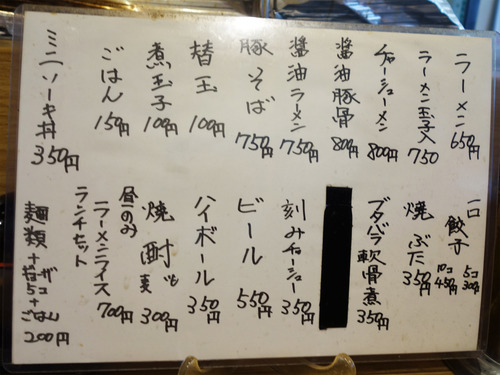 ラーメン 650円
ラーメン玉子入 750
チャーシューメン 800円
醤油豚骨 800円
醤油ラーメン 750円
豚そば 750円
替玉 100円
煮玉子 100円
ごはん 150円
ミニソーキ丼 350円
一口餃子 5コ 300円 10コ 450円
焼ぶた 350円
ブタバラ軟骨煮 350円
刻みチャーシュー 350円
ビール 550円
ハイボール 350円
焼酎 麦 300円
昼のみ
ラーメンライス 700円
ランチセット
麺類+ギョーザ5コ+ごはん 200円